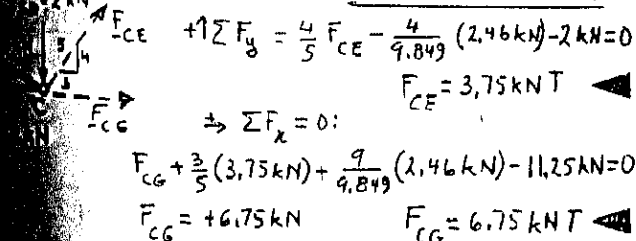 F_CE +↑ΣF_y = 4/5 F_CE - 4/9.849 (2.46 kN) - 2 kN = 0
5
4
F_CE = 3.75 kN T
F_CG
+→ ΣF_x = 0:
F_CG + 3/5 (3.75 kN) + 9/9.849 (2.46 kN) - 11.25 kN = 0
F_CG = +6.75 kN F_CG = 6.75 kN T